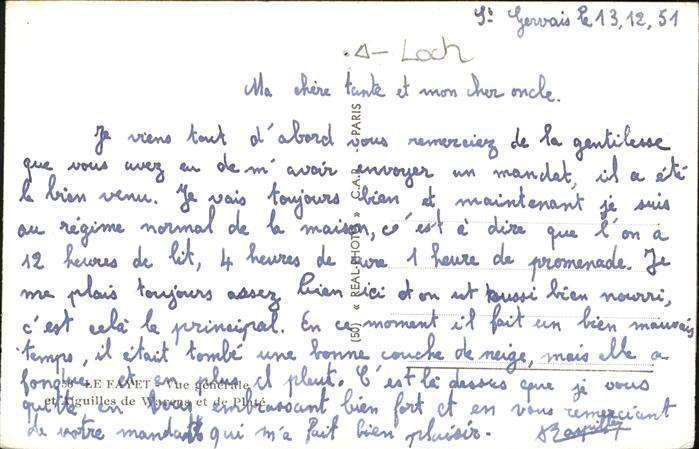 St Gervais le 13, 12, 51
Loch
Ma chère tante et mon cher oncle.
Je viens tout d'abord vous remerciez de la gentilesse
que vous avez eu de m'avoir envoyer un mandat, il a été
le bien venu. Je vais toujours bien et maintenant je suis
au régime normal de la maison, c'est à dire que l'on a
12 heures de lit, 4 heures de cure 1 heure de promenade. Je
me plais toujours assez bien ici et on est aussi bien nourri,
c'est celà le principal. En ce moment il fait un bien mauvais
temps, il était tombé une bonne couche de neige, mais elle a
fondue et en plus il pleut. C'est là dessus que je vous
quitte en vous embrassant bien fort et en vous remerciant
de votre mandat qui m'a fait bien plaisir.
LE FAYET - Vue générale
et Aiguilles de Warens et de Platé
(50) « REAL-PHOTO » C.A.P. - PARIS